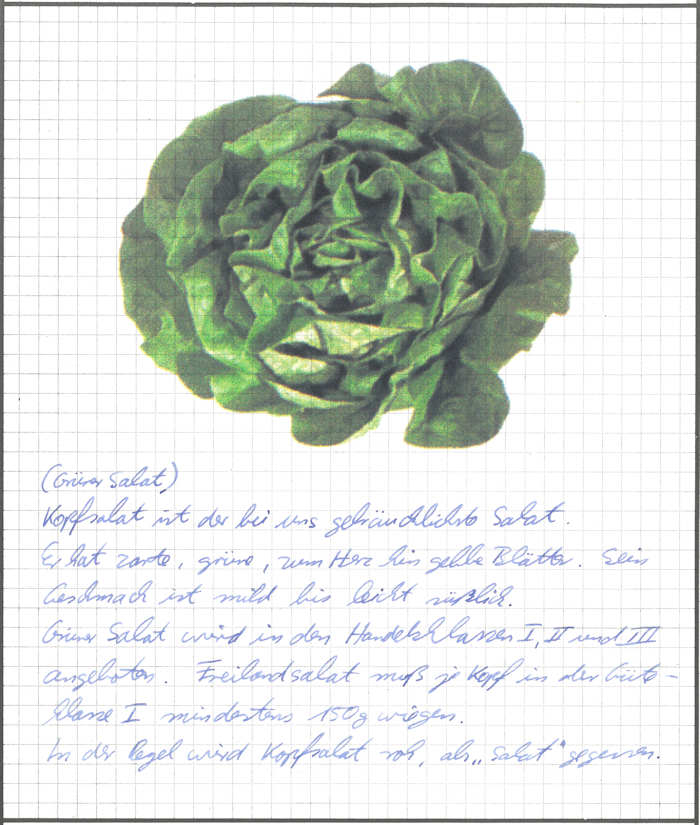 (Grüner Salat)
Kopfsalat ist der bei uns gebräuchlichste Salat.
Er hat zarte, grüne, zum Herz hin gelbe Blätter. Sein
Geschmack ist mild bis leicht süßlich.
Grüner Salat wird in den Handelsklassen I, II und III
angeboten. Freilandsalat muß je Kopf in der Güte-
klasse I mindestens 150g wiegen.
In der Regel wird Kopfsalat roh, als „Salat" gegessen.